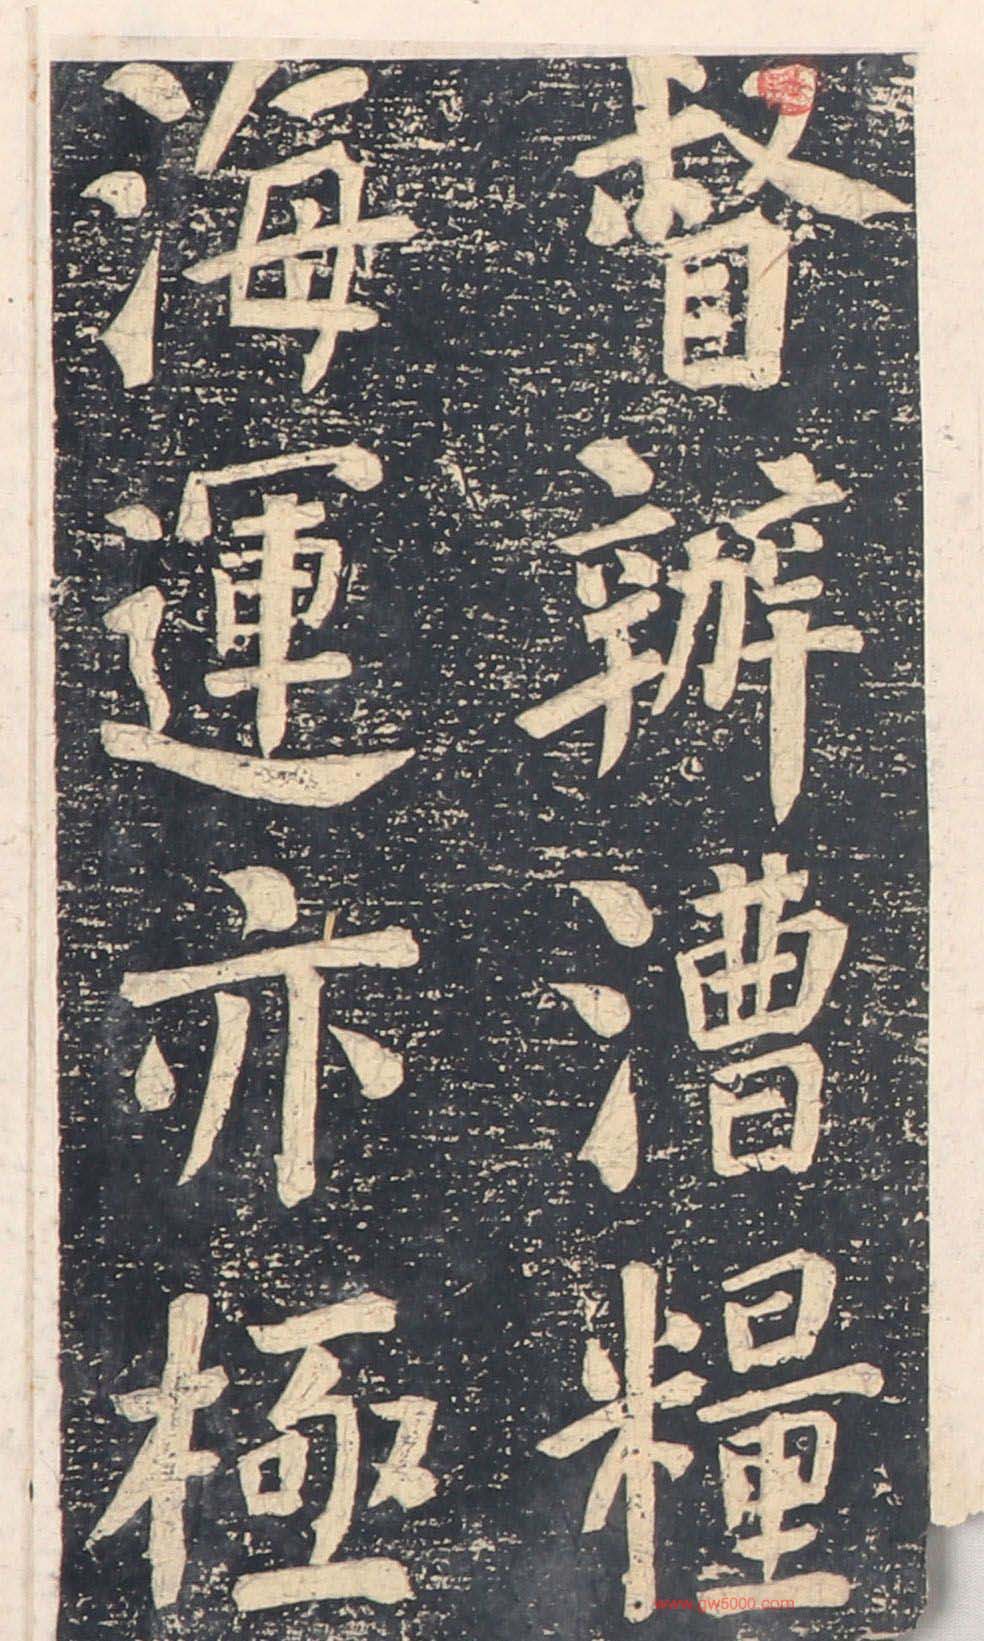 督辦漕糧
海運亦極
www.gw5000.com